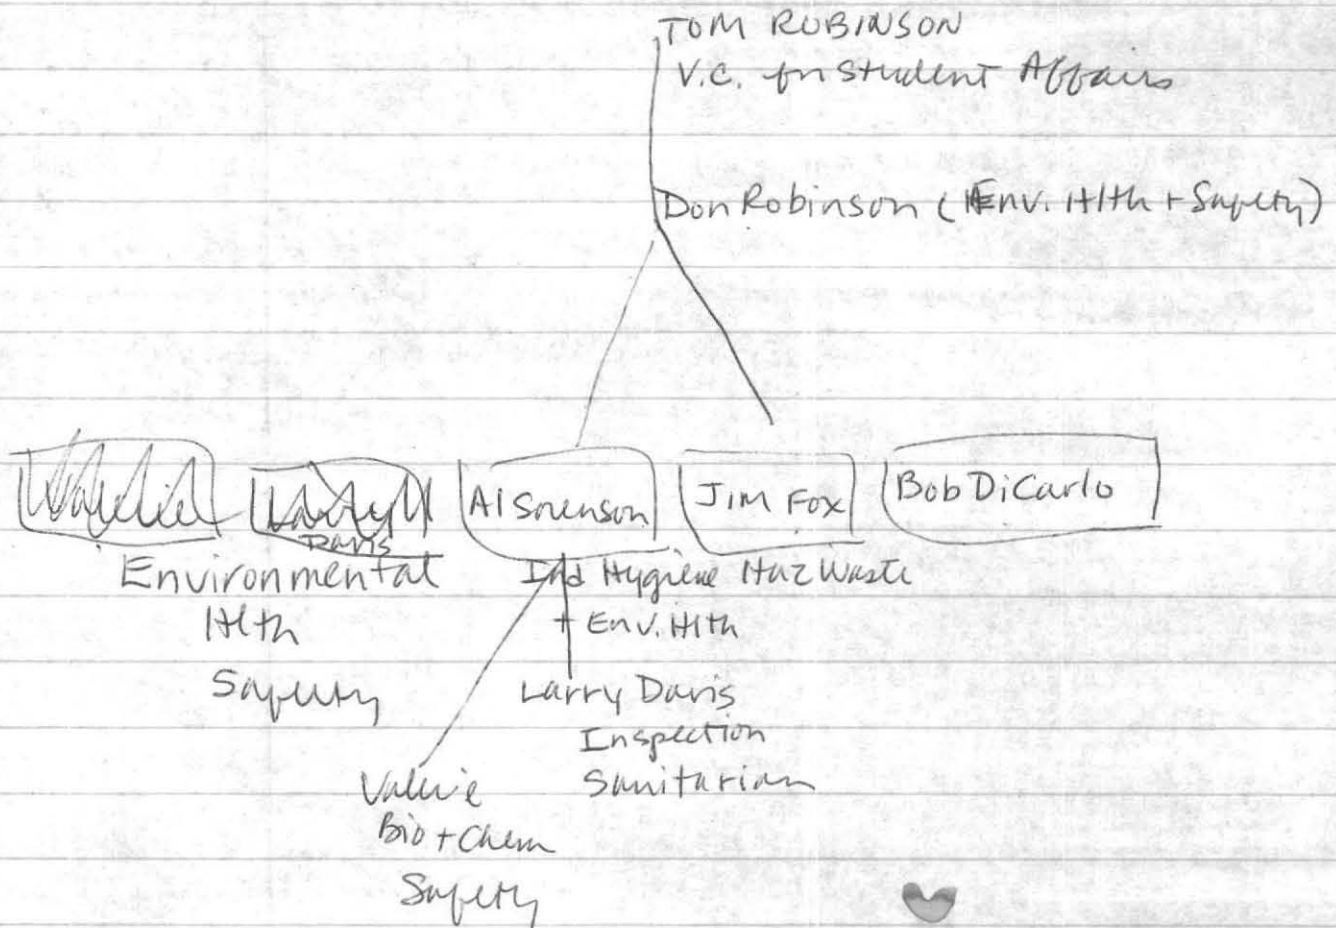 TOM ROBINSON
V.C. for Student Affairs
Don Robinson (Env. Hlth + Safety)
Valerie
Larry
Davis
Al Sorenson
Jim Fox
Bob DiCarlo
Environmental
Hlth
Safety
Ind Hygiene
+ Env. Hlth
Haz Waste
Larry Davis
Inspection
Sanitarian
Valerie
Bio + Chem
Safety